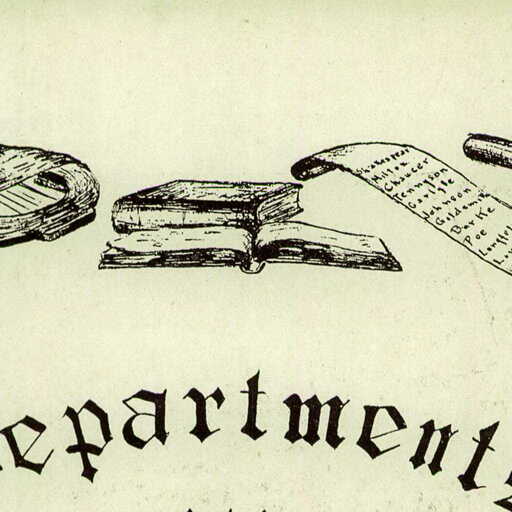 Shakespear
Milton
Chaucer
Tennyson
Gray
Johnson
Goldsmi
Burke
Poe
Longfel
epartments